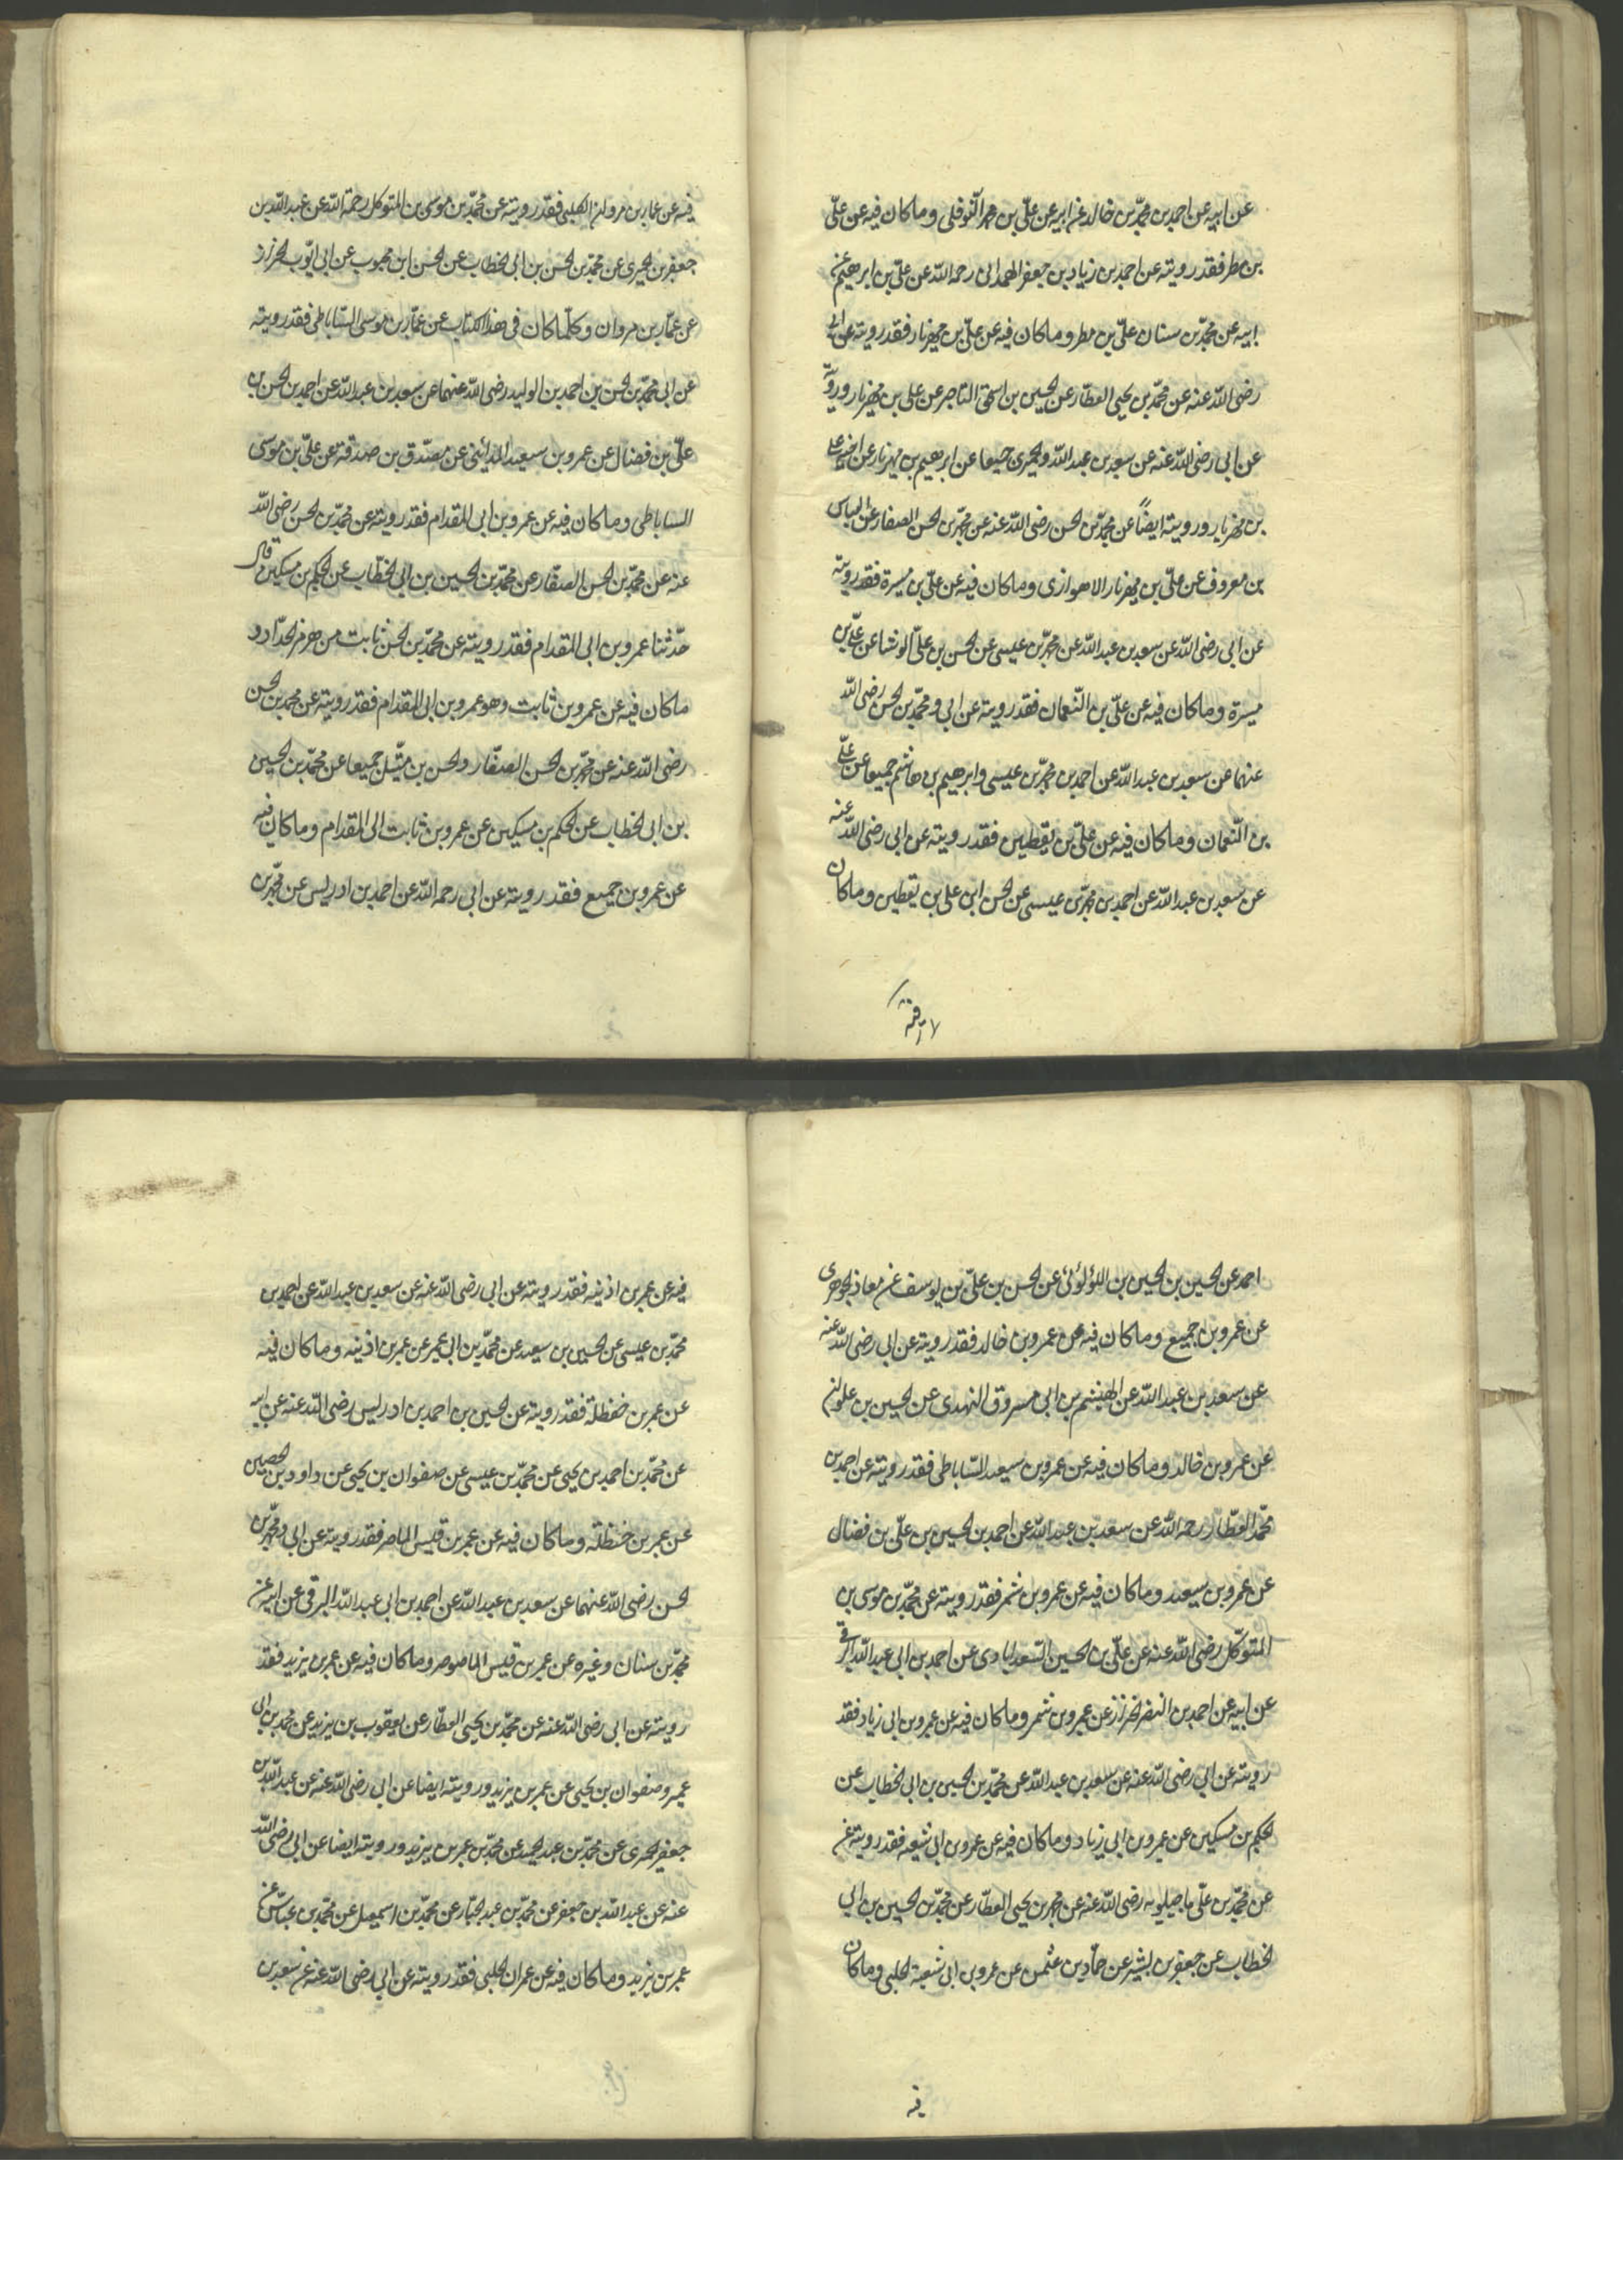 عن ابيه عن احمد بن محمّد بن خالد عن ابيه عن علىّ بن محمد النّوفلى وما كان فيه عن علىّ
بن مطر فقد رويته عن احمد بن زياد بن جعفر الهمدانى رحمه اللّه عن علىّ بن ابرهيم عن
ابيه عن محمّد بن سنان علىّ بن مطر وما كان فيه عن علىّ بن مهزيار فقد رويته عن ابى
رضى اللّه عنه عن محمّد بن يحيى العطّار عن الحسين بن اسحق التاجر عن على بن مهزيار ورويته
عن ابى رضى اللّه عنه عن سعد بن عبد اللّه والحميرى جميعا عن ابرهيم بن مهزيار عن اخيه على
بن مهزيار ورويته ايضاً عن محمّد بن الحسن رضى اللّه عنه عن محمّد بن الحسن الصفار عن العباس
بن معروف عن علىّ بن مهزيار الاهوازى وما كان فيه عن علىّ بن ميسرة فقد رويته
عن ابى رضى اللّه عن سعد بن عبد اللّه عن محمّد بن عيسى عن الحسن بن علىّ الوشا عن علىّ بن
ميسرة وما كان فيه عن علىّ بن النّعمان فقد رويته عن ابى ومحمّد بن الحسن رضى اللّه
عنهما عن سعد بن عبد اللّه عن احمد بن محمّد بن عيسى وابرهيم بن هاشم جميعا عن علىّ
بن النّعمان وما كان فيه عن علىّ بن يقطين فقد رويته عن ابى رضى اللّه عنه
عن سعد بن عبد اللّه عن احمد بن محمّد بن عيسى عن الحسن ابن على بن يقطين وما كان
فيه عن عمار بن مروان الكلبى فقد رويته عن محمّد بن موسى بن المتوكل رحمة اللّه عن عبد اللّه بن
جعفر بن الحميرى عن محمّد بن الحسن بن ابى الخطاب عن الحسن ابن محبوب عن ابى ايّوب الخزاز
عن عمّار بن مروان وكلّما كان فى هذا الكتاب عن عمّار بن موسى السّاباطى فقد رويته
عن ابى محمّد بن الحسن بن احمد بن الوليد رضى اللّه عنهما عن سعد بن عبد اللّه عن احمد بن الحسن بن
علىّ بن فضال عن عمرو بن سعيد المدائنى عن مصدّق بن صدقة عن علىّ بن موسى
الساباطى وما كان فيه عن عمرو بن ابى المقدام فقد رويته عن محمّد بن الحسن رضى اللّه
عنه عن محمّد بن الحسن الصفّار عن محمّد بن الحسين بن ابى الخطّاب عن الحكم بن مسكين قال
حدّثنا عمرو بن ابى المقدام فقد رويته عن محمّد بن الحسن ثابت من هرمز الحدّاد و
ما كان فيه عن عمرو بن ثابت وهو عمرو بن ابى المقدام فقد رويته عن محمد بن الحسن
رضى اللّه عنه عن محمّد بن الحسن الصفّار والحسن بن متّيل جميعا عن محمّد بن الحسين
بن ابى الخطاب عن الحكم بن مسكين عن عمرو بن ثابت ابى المقدام وما كان فيه
عن عمرو بن جميع فقد رويته عن ابى رحمه اللّه عن احمد بن ادريس عن محمّد بن
احمد عن الحسين بن الحسين بن اللؤلوئى عن الحسن بن علىّ بن يوسف عن معاذ الجوهرى
عن عمرو بن جميع وما كان فيه عن عمرو بن خالد فقد رويته عن ابى رضى اللّه عنه
عن سعد بن عبد اللّه عن الهيثم بن ابى مسروق النهدى عن الحسين بن علوان
عن عمرو بن خالد وما كان فيه عن عمرو بن سعيد السّاباطى فقد رويته عن احمد بن
محمّد العطّار رحمه اللّه عن سعد بن عبد اللّه عن احمد بن الحسين بن علىّ بن فضال
عن عمرو بن سعيد وما كان فيه عن عمرو بن شمر فقد رويته عن محمّد بن موسى بن
المتوكّل رضى اللّه عنه عن علىّ بن الحسين السّعدابادى عن احمد بن ابى عبد اللّه البرقى
عن ابيه عن احمد بن النضر الخزاز عن عمرو بن شمر وما كان فيه عن عمرو بن ابى زياد فقد
رويته عن ابى رضى اللّه عنه عن سعد بن عبد اللّه عن محمّد بن الحسين بن ابى الخطاب عن
الحكم بن مسكين عن عمرو بن ابى زياد وما كان فيه عن عمرو بن ابى شعبه فقد رويته عن
عن محمّد بن علىّ ماجيلويه رضى اللّه عنه عن محمد بن يحيى العطّار عن محمّد بن الحسين بن ابى
الخطاب عن جعفر بن بشير عن حمّاد بن عثمن عن عمرو بن ابى شعبة الحلبى وما كان
فيه
فيه عن عمر بن اذينه فقد رويته عن ابى رضى اللّه عنه عن سعد بن عبد اللّه عن احمد بن
محمّد بن عيسى عن الحسين بن سعيد عن محمّد بن ابى عمير عن عمر بن اذينه وما كان فيه
عن عمر بن حنظلة فقد رويته عن الحسين بن احمد بن ادريس رضى اللّه عنه عن ابيه
عن محمّد بن احمد بن يحيى عن محمّد بن عيسى عن صفوان بن يحيى عن داود بن الحصين
عن عمر بن حنظلة وما كان فيه عن عمر بن قيس الماصر فقد رويته عن ابى ومحمّد بن
الحسن رضى اللّه عنهما عن سعد بن عبد اللّه عن احمد بن ابى عبد اللّه البرقى عن ابيه عن
محمّد بن سنان وغيره عن عمر بن قيس الماصوصر وما كان فيه عن عمر بن يزيد فقد
رويته عن ابى رضى اللّه عنه عن محمّد بن يحيى العطّار عن يعقوب بن يزيد عن محمد بن ابى
عمير وصفوان بن يحيى عن عمر بن يزيد ورويته ايضا عن ابى رضى اللّه عنه عن عبد اللّه بن
جعفر الحميرى عن محمّد بن عبد الحميد عن محمّد بن عمر بن يزيد ورويته ايضا عن ابى رضى اللّه
عنه عن عبد اللّه بن جعفر عن محمّد بن عبد الجبّار عن محمّد بن اسمعيل عن محمّد بن عباس عن
عمر بن يزيد وما كان فيه عن عمران الحلبى فقد رويته عن ابى رضى اللّه عنه عن سعد بن